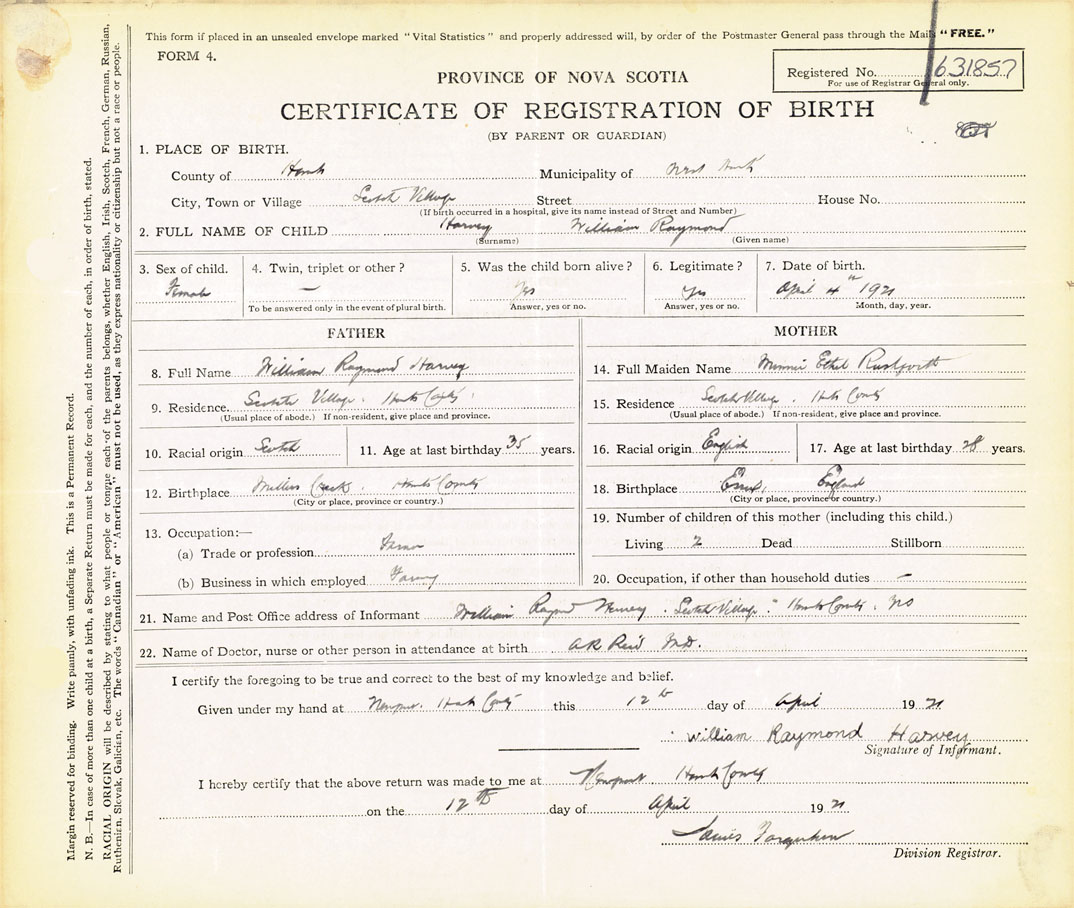 This form if placed in an unsealed envelope marked "Vital Statistics" and properly addressed will, by order of the Postmaster General pass through the Mails "FREE."
FORM 4.
PROVINCE OF NOVA SCOTIA
Registered No. 631857
For use of Registrar General only.
CERTIFICATE OF REGISTRATION OF BIRTH
(BY PARENT OR GUARDIAN)
1. PLACE OF BIRTH.
County of Hants Municipality of West Hants
City, Town or Village Scotch Village Street House No.
(If birth occurred in a hospital, give its name instead of Street and Number)
2. FULL NAME OF CHILD Harvey William Raymond
(Surname) (Given name)
3. Sex of child. 4. Twin, triplet or other? 5. Was the child born alive? 6. Legitimate? 7. Date of birth.
Female — Yes Yes April 4th 1921
To be answered only in the event of plural birth. Answer, yes or no. Answer, yes or no. Month, day, year.
FATHER
8. Full Name William Raymond Harvey
9. Residence. Scotch Village. Hants County
(Usual place of abode.) If non-resident, give place and province.
10. Racial origin Scotch 11. Age at last birthday 35 years.
12. Birthplace Hants County
(City or place, province or country.)
13. Occupation:—
(a) Trade or profession Farmer
(b) Business in which employed Farming
MOTHER
14. Full Maiden Name Minnie Ethel
15. Residence Scotch Village. Hants County
(Usual place of abode.) If non-resident, give place and province.
16. Racial origin English 17. Age at last birthday 28 years.
18. Birthplace Essex, England
(City or place, province or country.)
19. Number of children of this mother (including this child.)
Living 2 Dead Stillborn
20. Occupation, if other than household duties —
21. Name and Post Office address of Informant William Raymond Harvey. Scotch Village. Hants County. NS
22. Name of Doctor, nurse or other person in attendance at birth AR Reid MD.
I certify the foregoing to be true and correct to the best of my knowledge and belief.
Given under my hand at Newport. Hants County this 12th day of April 1921
William Raymond Harvey
Signature of Informant.
I hereby certify that the above return was made to me at Newport Hants County
on the 12th day of April 1921
James
Division Registrar.
Margin reserved for binding. Write plainly, with unfading ink. This is a Permanent Record.
N. B.—In case of more than one child at a birth, a Separate Return must be made for each, and the number of each, in order of birth, stated.
RACIAL ORIGIN will be described by stating to what people or tongue each of the parents belongs, whether English, Irish, Scotch, French, German, Russian,
Ruthenian, Slovak, Galician, etc. The words "Canadian" or "American" must not be used, as they express nationality or citizenship but not a race or people.